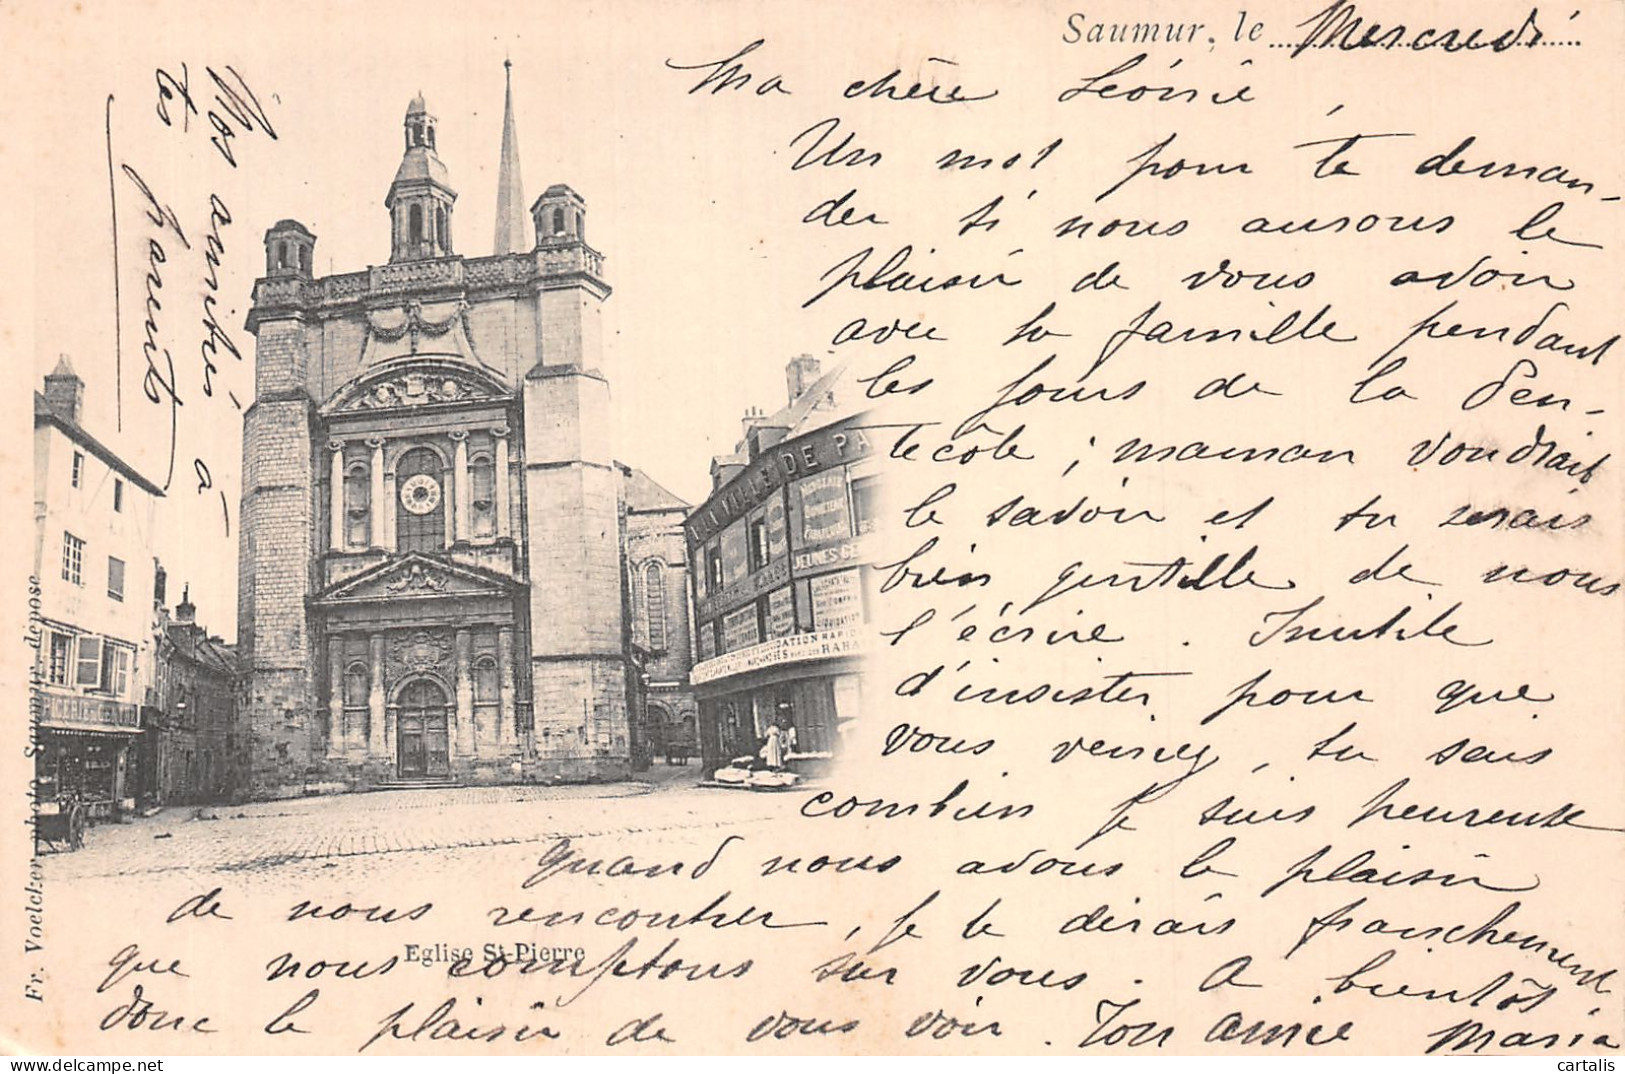 Saumur, le Mercredi
Ma chère Léonie,
Un mot pour te deman-
der si nous aurons le
plaisir de vous avoir
avec ta famille pendant
les jours de la Pen-
tecôte ; maman voudrait
le savoir et tu serais
bien gentille de nous
l'écrire. Inutile
d'insister pour que
vous veniez, tu sais
combien je suis heureuse
quand nous avons le plaisir
de nous rencontrer, je te dirais franchement
que nous comptons sur vous. A bientôt
donc le plaisir de vous voir. Ton amie Maria
Nos amitiés à
tes parents
Eglise St-Pierre
Fr. Voelcker, photo Saumur dépose
A LA VILLE DE PA
JEUNES GE
LIQUIDATION RAPID
RABA
cartalis
delcampe.net